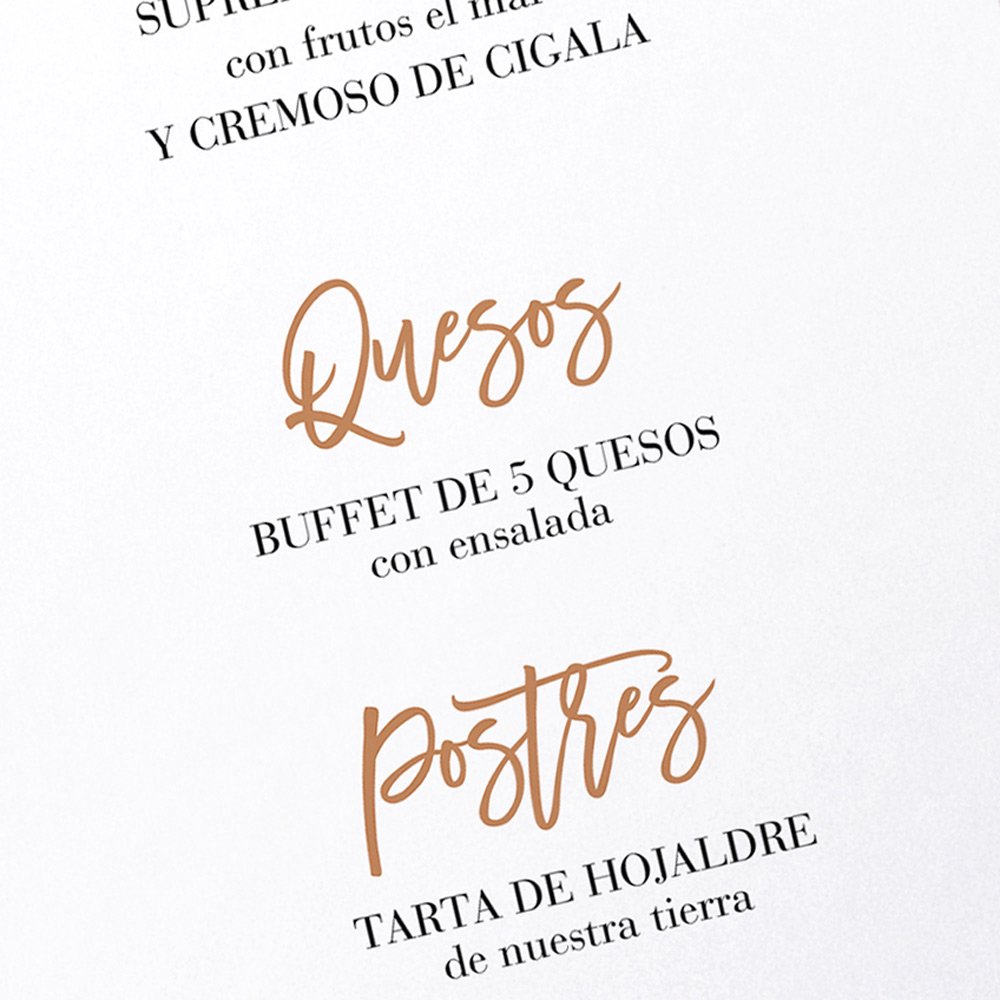 con frutos el mar
Y CREMOSO DE CIGALA
Quesos
BUFFET DE 5 QUESOS
con ensalada
Postres
TARTA DE HOJALDRE
de nuestra tierra